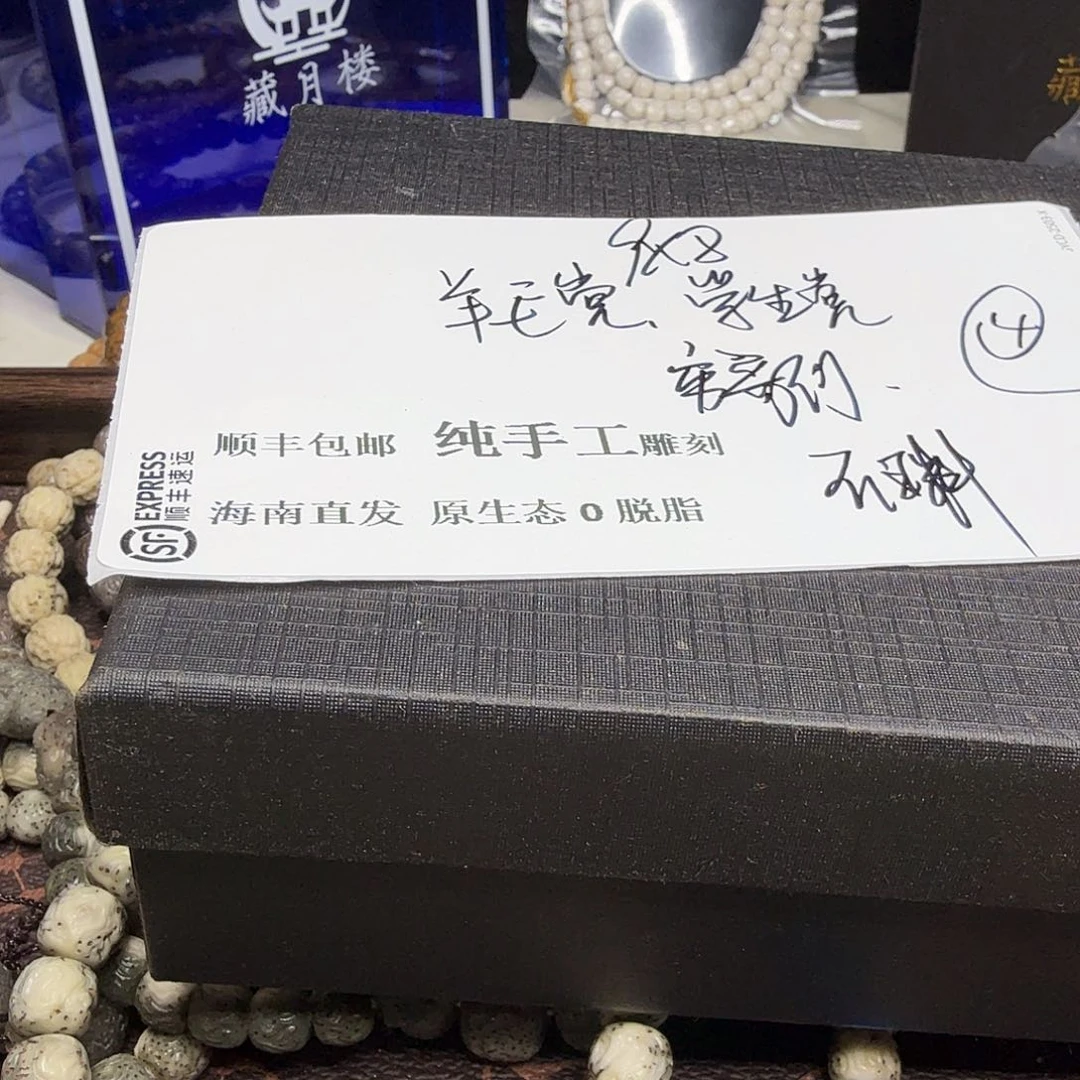 藏月楼
藏
9x8
羊毛党、学生党
④
顺丰包邮 纯手工雕刻
海南直发 原生态0脱脂
SF EXPRESS
顺丰速运